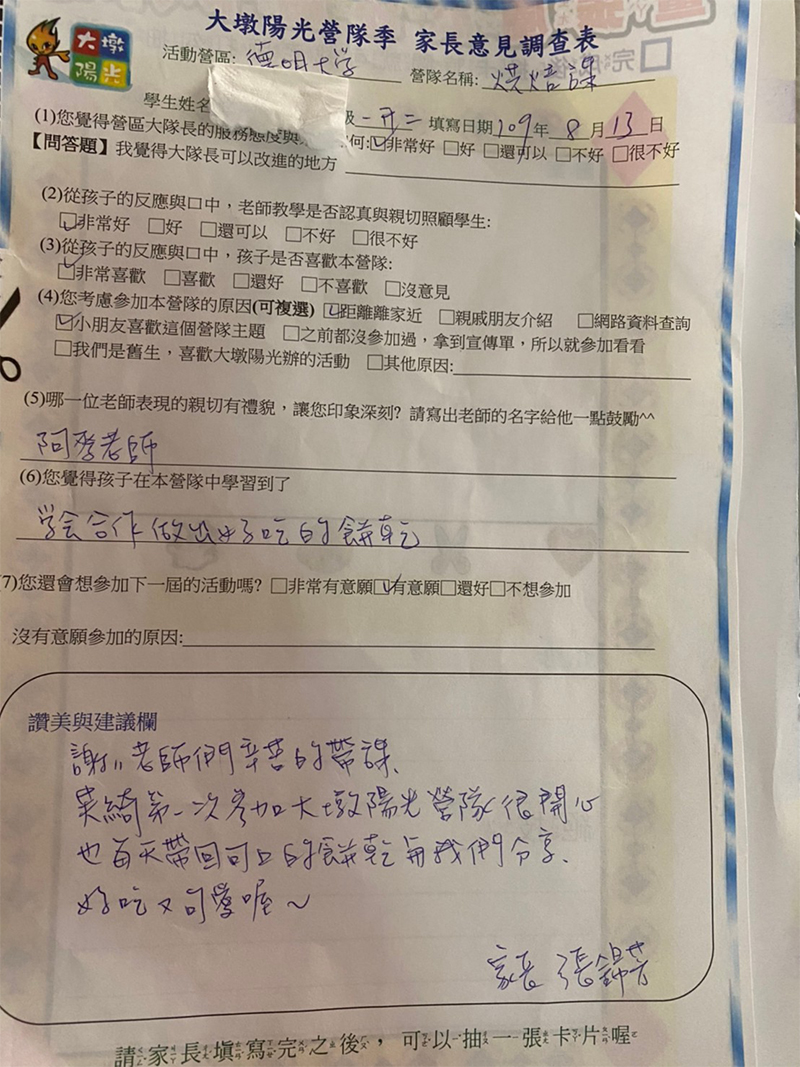 大墩
陽光
大墩陽光營隊季 家長意見調查表
活動營區: 德明大学 營隊名稱: 烘焙課
學生姓名 級 一升二 填寫日期 109年 8月 13日
(1)您覺得營區大隊長的服務態度與 何:☑非常好 □好 □還可以 □不好 □很不好
【問答題】我覺得大隊長可以改進的地方
(2)從孩子的反應與口中,老師教學是否認真與親切照顧學生:
☑非常好 □好 □還可以 □不好 □很不好
(3)從孩子的反應與口中,孩子是否喜歡本營隊:
☑非常喜歡 □喜歡 □還好 □不喜歡 □沒意見
(4)您考慮參加本營隊的原因(可複選) ☑距離離家近 □親戚朋友介紹 □網路資料查詢
☑小朋友喜歡這個營隊主題 □之前都沒參加過,拿到宣傳單,所以就參加看看
□我們是舊生,喜歡大墩陽光辦的活動 □其他原因:
(5)哪一位老師表現的親切有禮貌,讓您印象深刻? 請寫出老師的名字給他一點鼓勵^^
老師
(6)您覺得孩子在本營隊中學習到了
学会合作做出好吃的餅乾
(7)您還會想參加下一屆的活動嗎? □非常有意願☑有意願□還好□不想參加
沒有意願參加的原因:
讚美與建議欄
謝〃老師們辛苦的帶課、
第一次參加大墩陽光營隊很開心
也每天帶回可口的餅乾與我們分享、
好吃又可愛喔~
家長 張錦芳
請家長填寫完之後,可以抽一張卡片喔